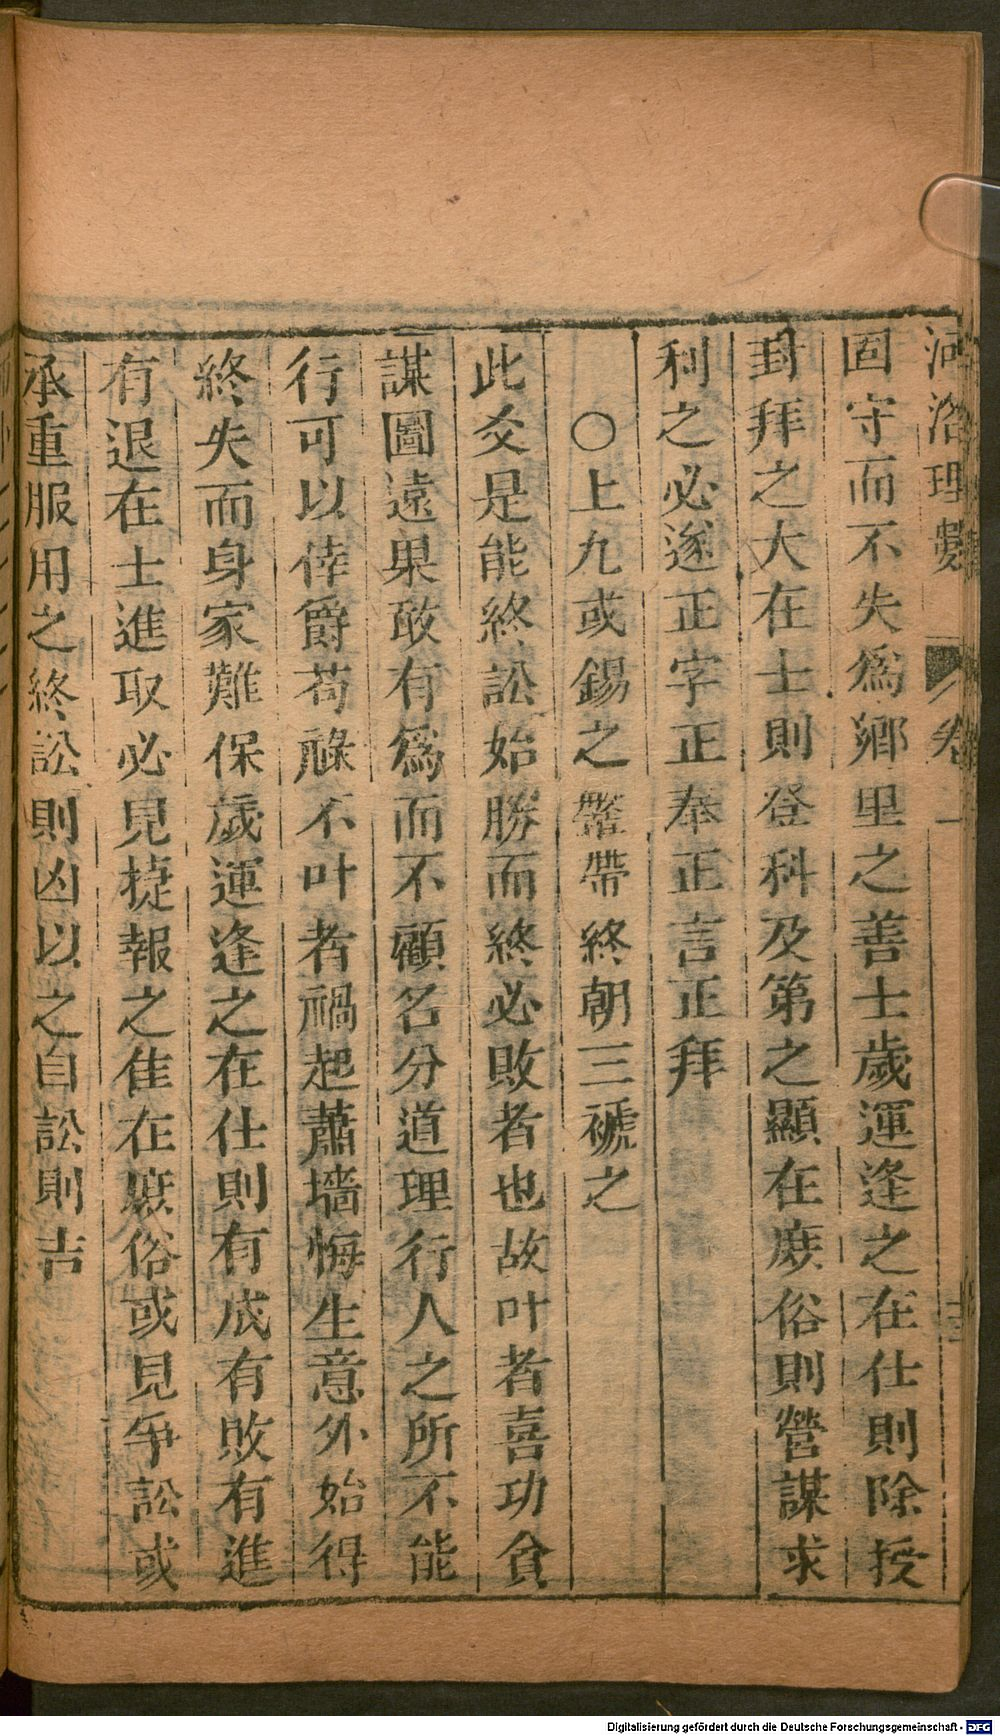 河洛理數 卷一
固守而不失爲鄉里之善士歲運逢之在仕則除授
封拜之大在士則登科及第之顯在庶俗則營謀求
利之必遂正字正奉正言正拜
○上九或錫之鞶帶終朝三褫之
此爻是能終訟始勝而終必敗者也故叶者喜功貪
謀圖遠果敢有爲而不顧名分道理行人之所不能
行可以倖爵苟祿不叶者禍起蕭墻悔生意外始得
終失而身家難保歲運逢之在仕則有成有敗有進
有退在士進取必見捷報之隹在庶俗或見争訟或
承重服用之終訟則凶以之自訟則吉
Digitalisierung gefördert durch die Deutsche Forschungsgemeinschaft - DFG